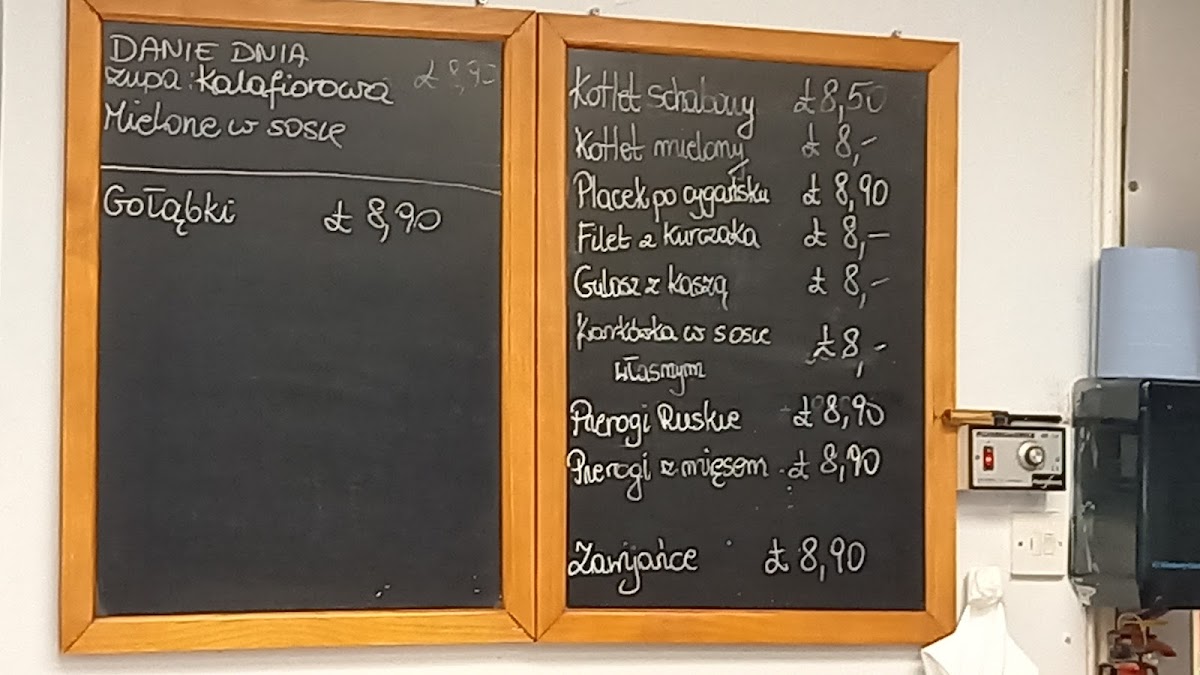 DANIE DNIA
zupa: Kalafiorowa £ 8,90
Mielone w sosie
Gołąbki £ 8,90
Kotlet schabowy £8,50
Kotlet mielony £ 8,-
Placek po cygańsku £ 8,90
Filet z kurczaka £ 8,-
Gulasz z kaszą £ 8,-
Karkówka w sosie £8,-
własnym
Pierogi Ruskie £8,90
Pierogi z mięsem £ 8,90
Zawijańce £ 8,90